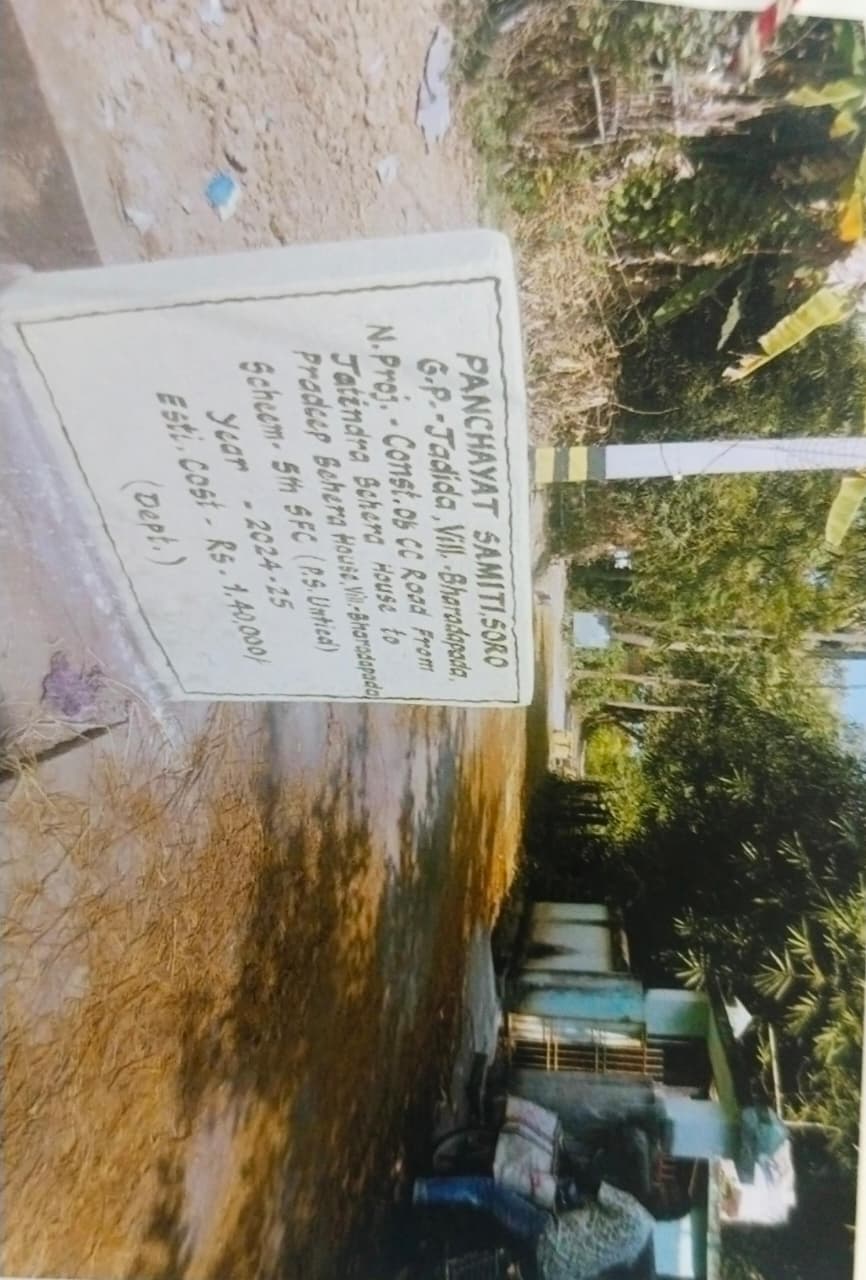 PANCHAYAT SAMITI, SORO
G.P.-Jadida, Vill.-Bharadapada,
N. Proj. - Const. Ob CC Road From
Jatindra Behera House to
Pradeep Behera House, Vill-Bharadapada
Schem- 5th SFC (P.S. Untied)
Year - 2024-25
Esti. Cost - Rs. 1,40,000/
(Dept.)